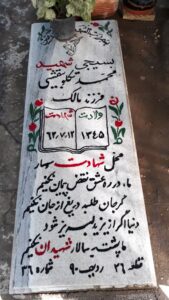 بسیجی شهید
محمد
فرزند مالک
ولادت شهادت
۱۳۴۵ ۶۲,۷,۱۲
محل شهادت
ما، در ره عشق نقض پیمان نکنیم
گر جان طلبد دریغ از جان نکنیم
دنیا اگر از یزید لبریز شود
ما پشت به سالار شهیدان نکنیم
قطعه ۲۶ ردیف ۹۰ شماره ۳۶